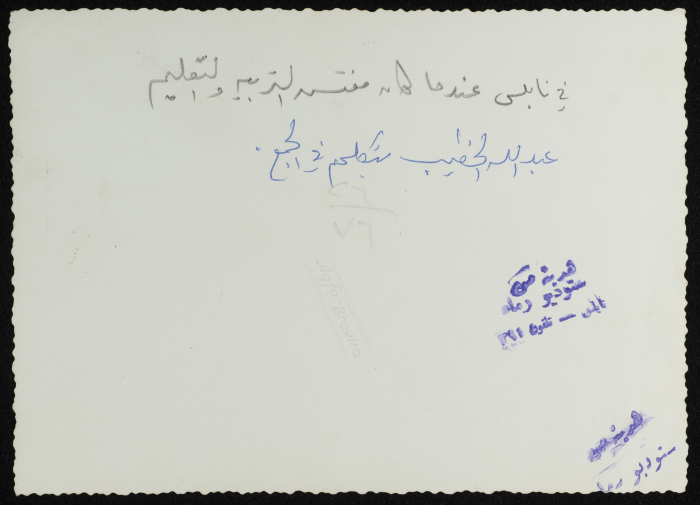 في نابلس عندما كان مفتش التربيه والتعليم
عبد الله الخطيب يتكلم في الجمع.
هدية من
ستوديو رماء
نابلس — تلفون
هدية من
ستوديو